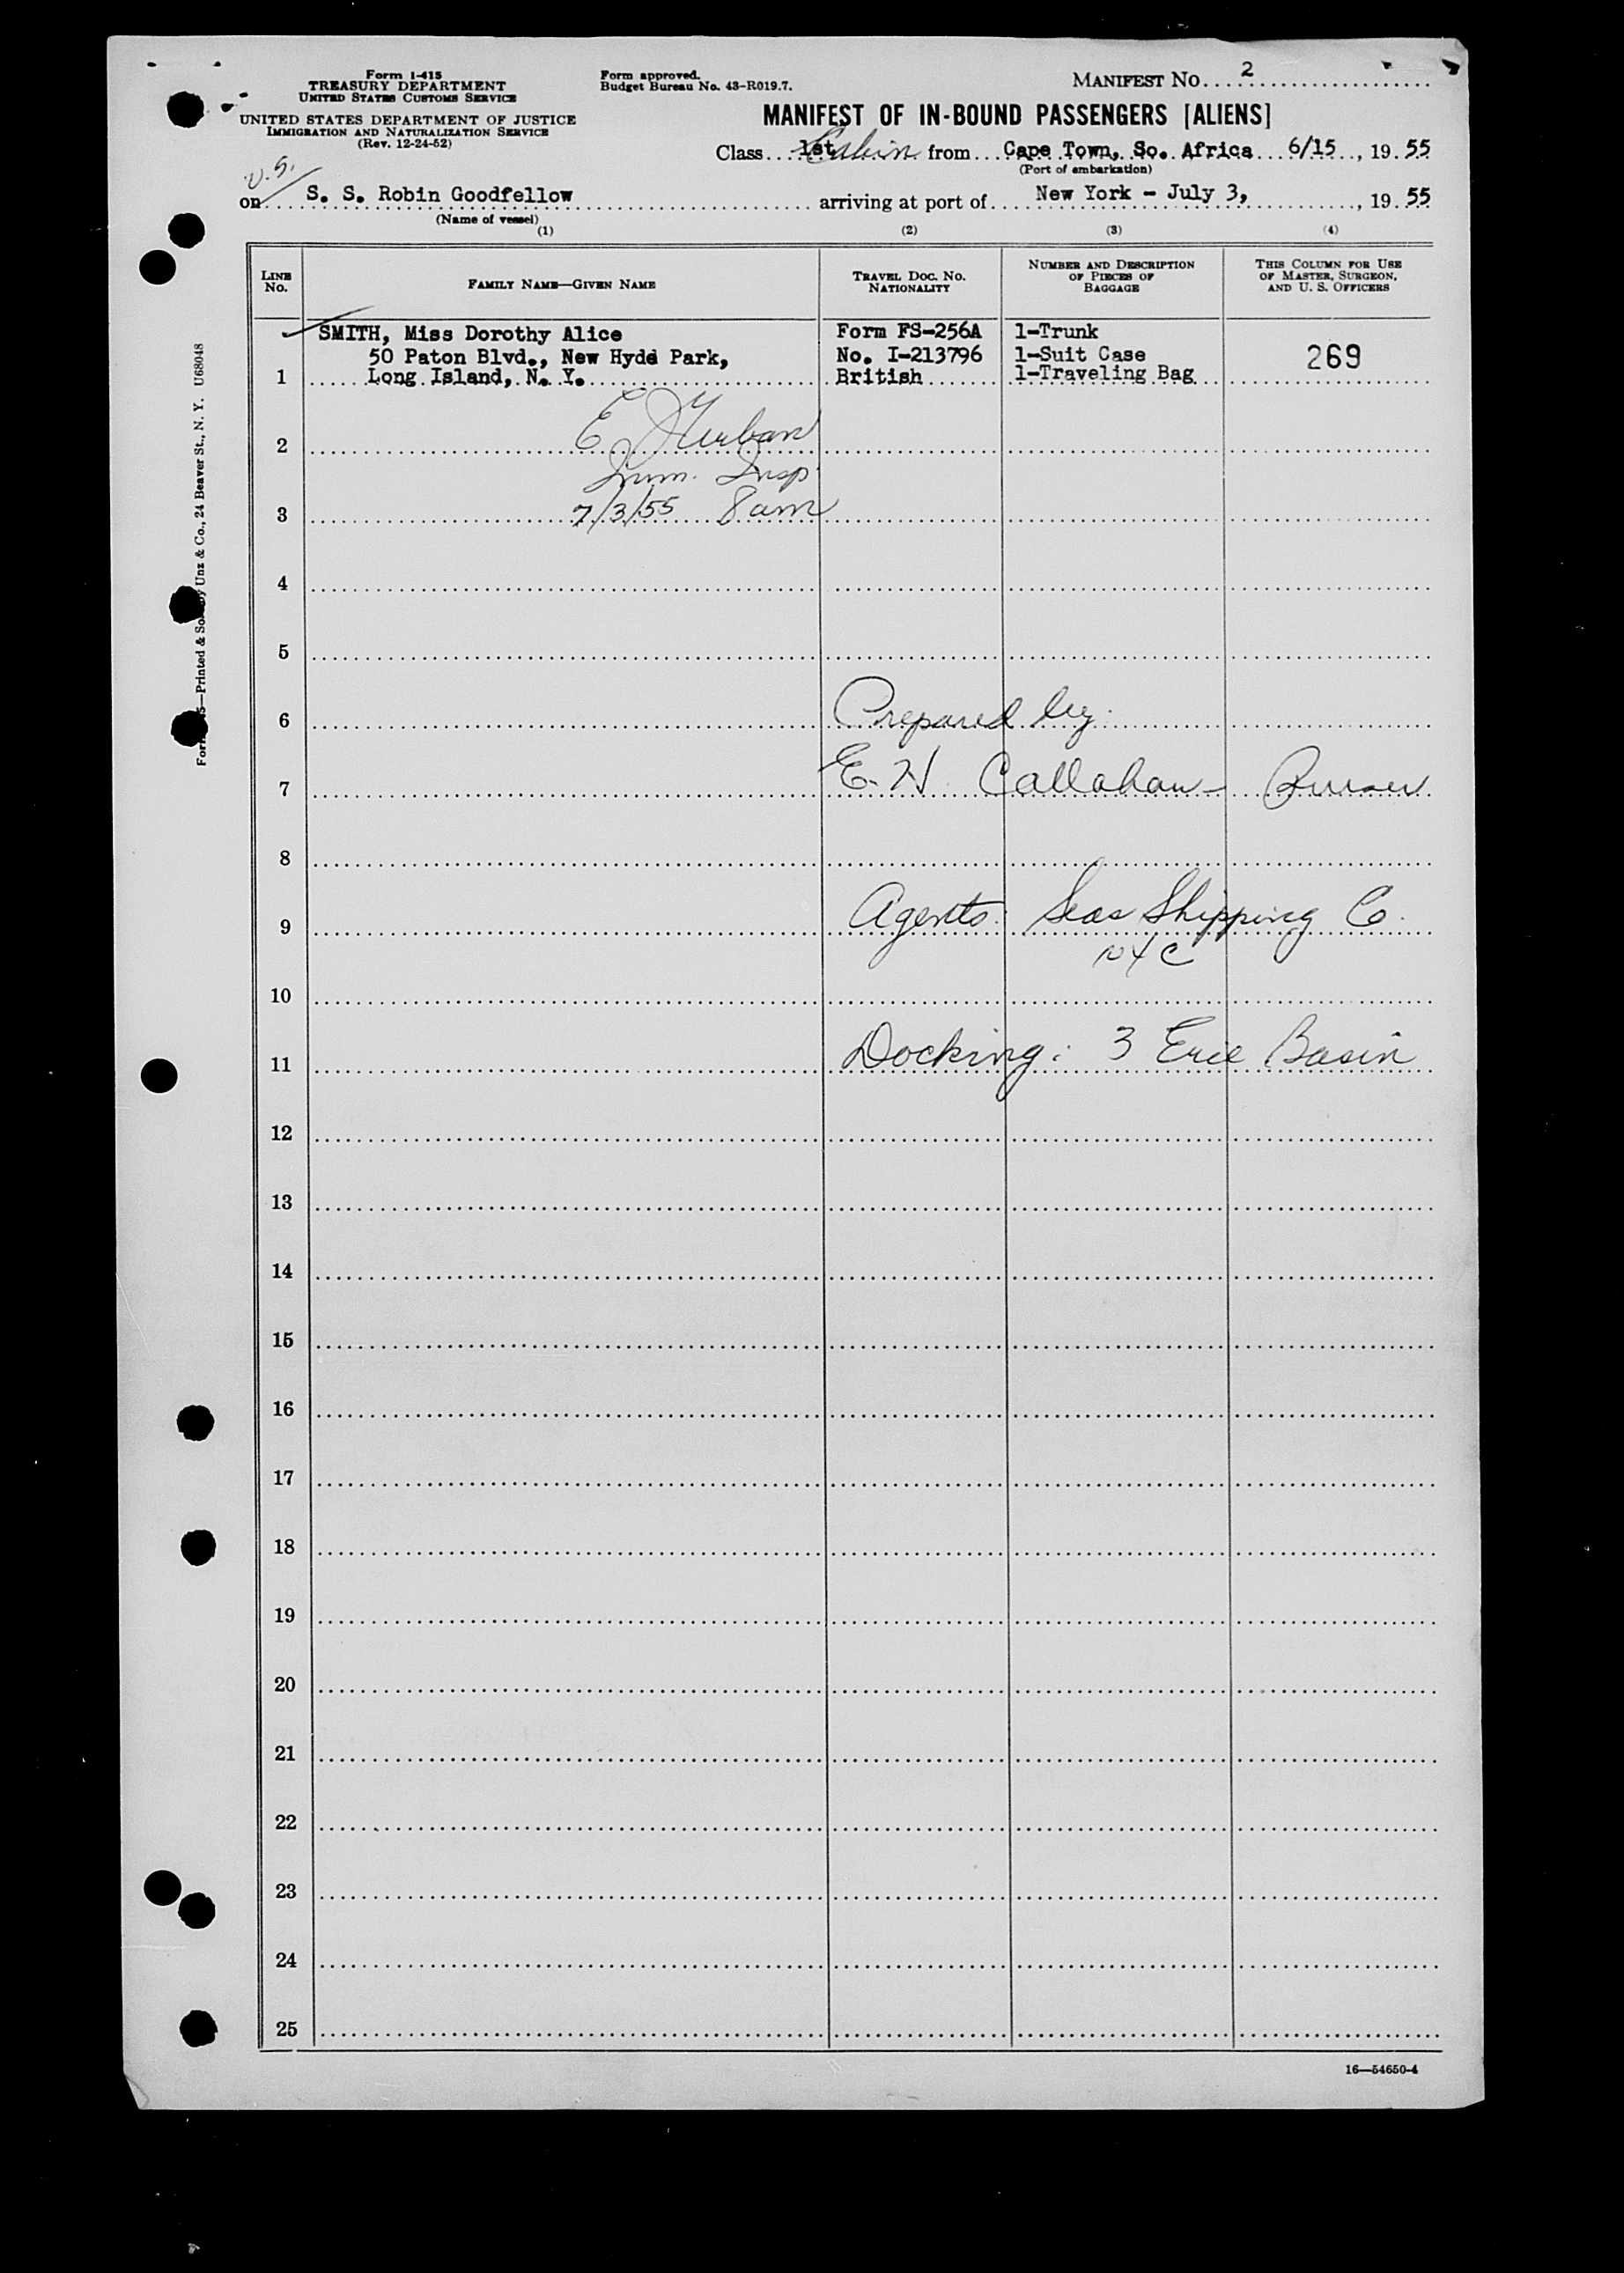 Form I-415
TREASURY DEPARTMENT
UNITED STATES CUSTOMS SERVICE
UNITED STATES DEPARTMENT OF JUSTICE
IMMIGRATION AND NATURALIZATION SERVICE
(Rev. 12-24-52)
Form approved.
Budget Bureau No. 43-R019.7.
MANIFEST No. 2
MANIFEST OF IN-BOUND PASSENGERS [ALIENS]
Class 1st Cabin from Cape Town, So. Africa 6/15, 1955
(Port of embarkation)
U.S.
on S. S. Robin Goodfellow arriving at port of New York - July 3, 1955
(Name of vessel)
(1) (2) (3) (4)
LINE No. FAMILY NAME—GIVEN NAME TRAVEL DOC. NO. NATIONALITY NUMBER AND DESCRIPTION OF PIECES OF BAGGAGE THIS COLUMN FOR USE OF MASTER, SURGEON, AND U. S. OFFICERS
SMITH, Miss Dorothy Alice Form FS-256A 1-Trunk
50 Paton Blvd., New Hyde Park, No. I-213796 1-Suit Case 269
1 Long Island, N. Y. British 1-Traveling Bag
2 E
Imm. Insp.
3 7/3/55 8am
4
5
6 Prepared by:
7 E. H. Callahan - Purser
8
9 Agents: Seas Shipping Co.
NYC
10
11 Docking: 3 Erie Basin
12
13
14
15
16
17
18
19
20
21
22
23
24
25
16—54650-4
Printed & Sold by Unz & Co., 24 Beaver St., N. Y. U68048